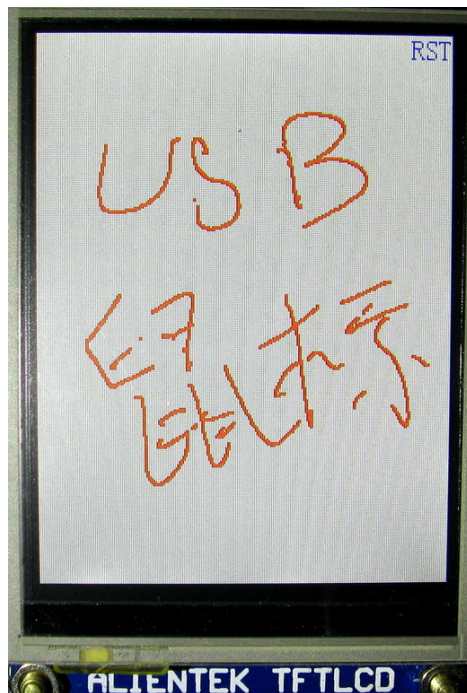 RST
USB
鼠标
ALIENTEK TFTLCD